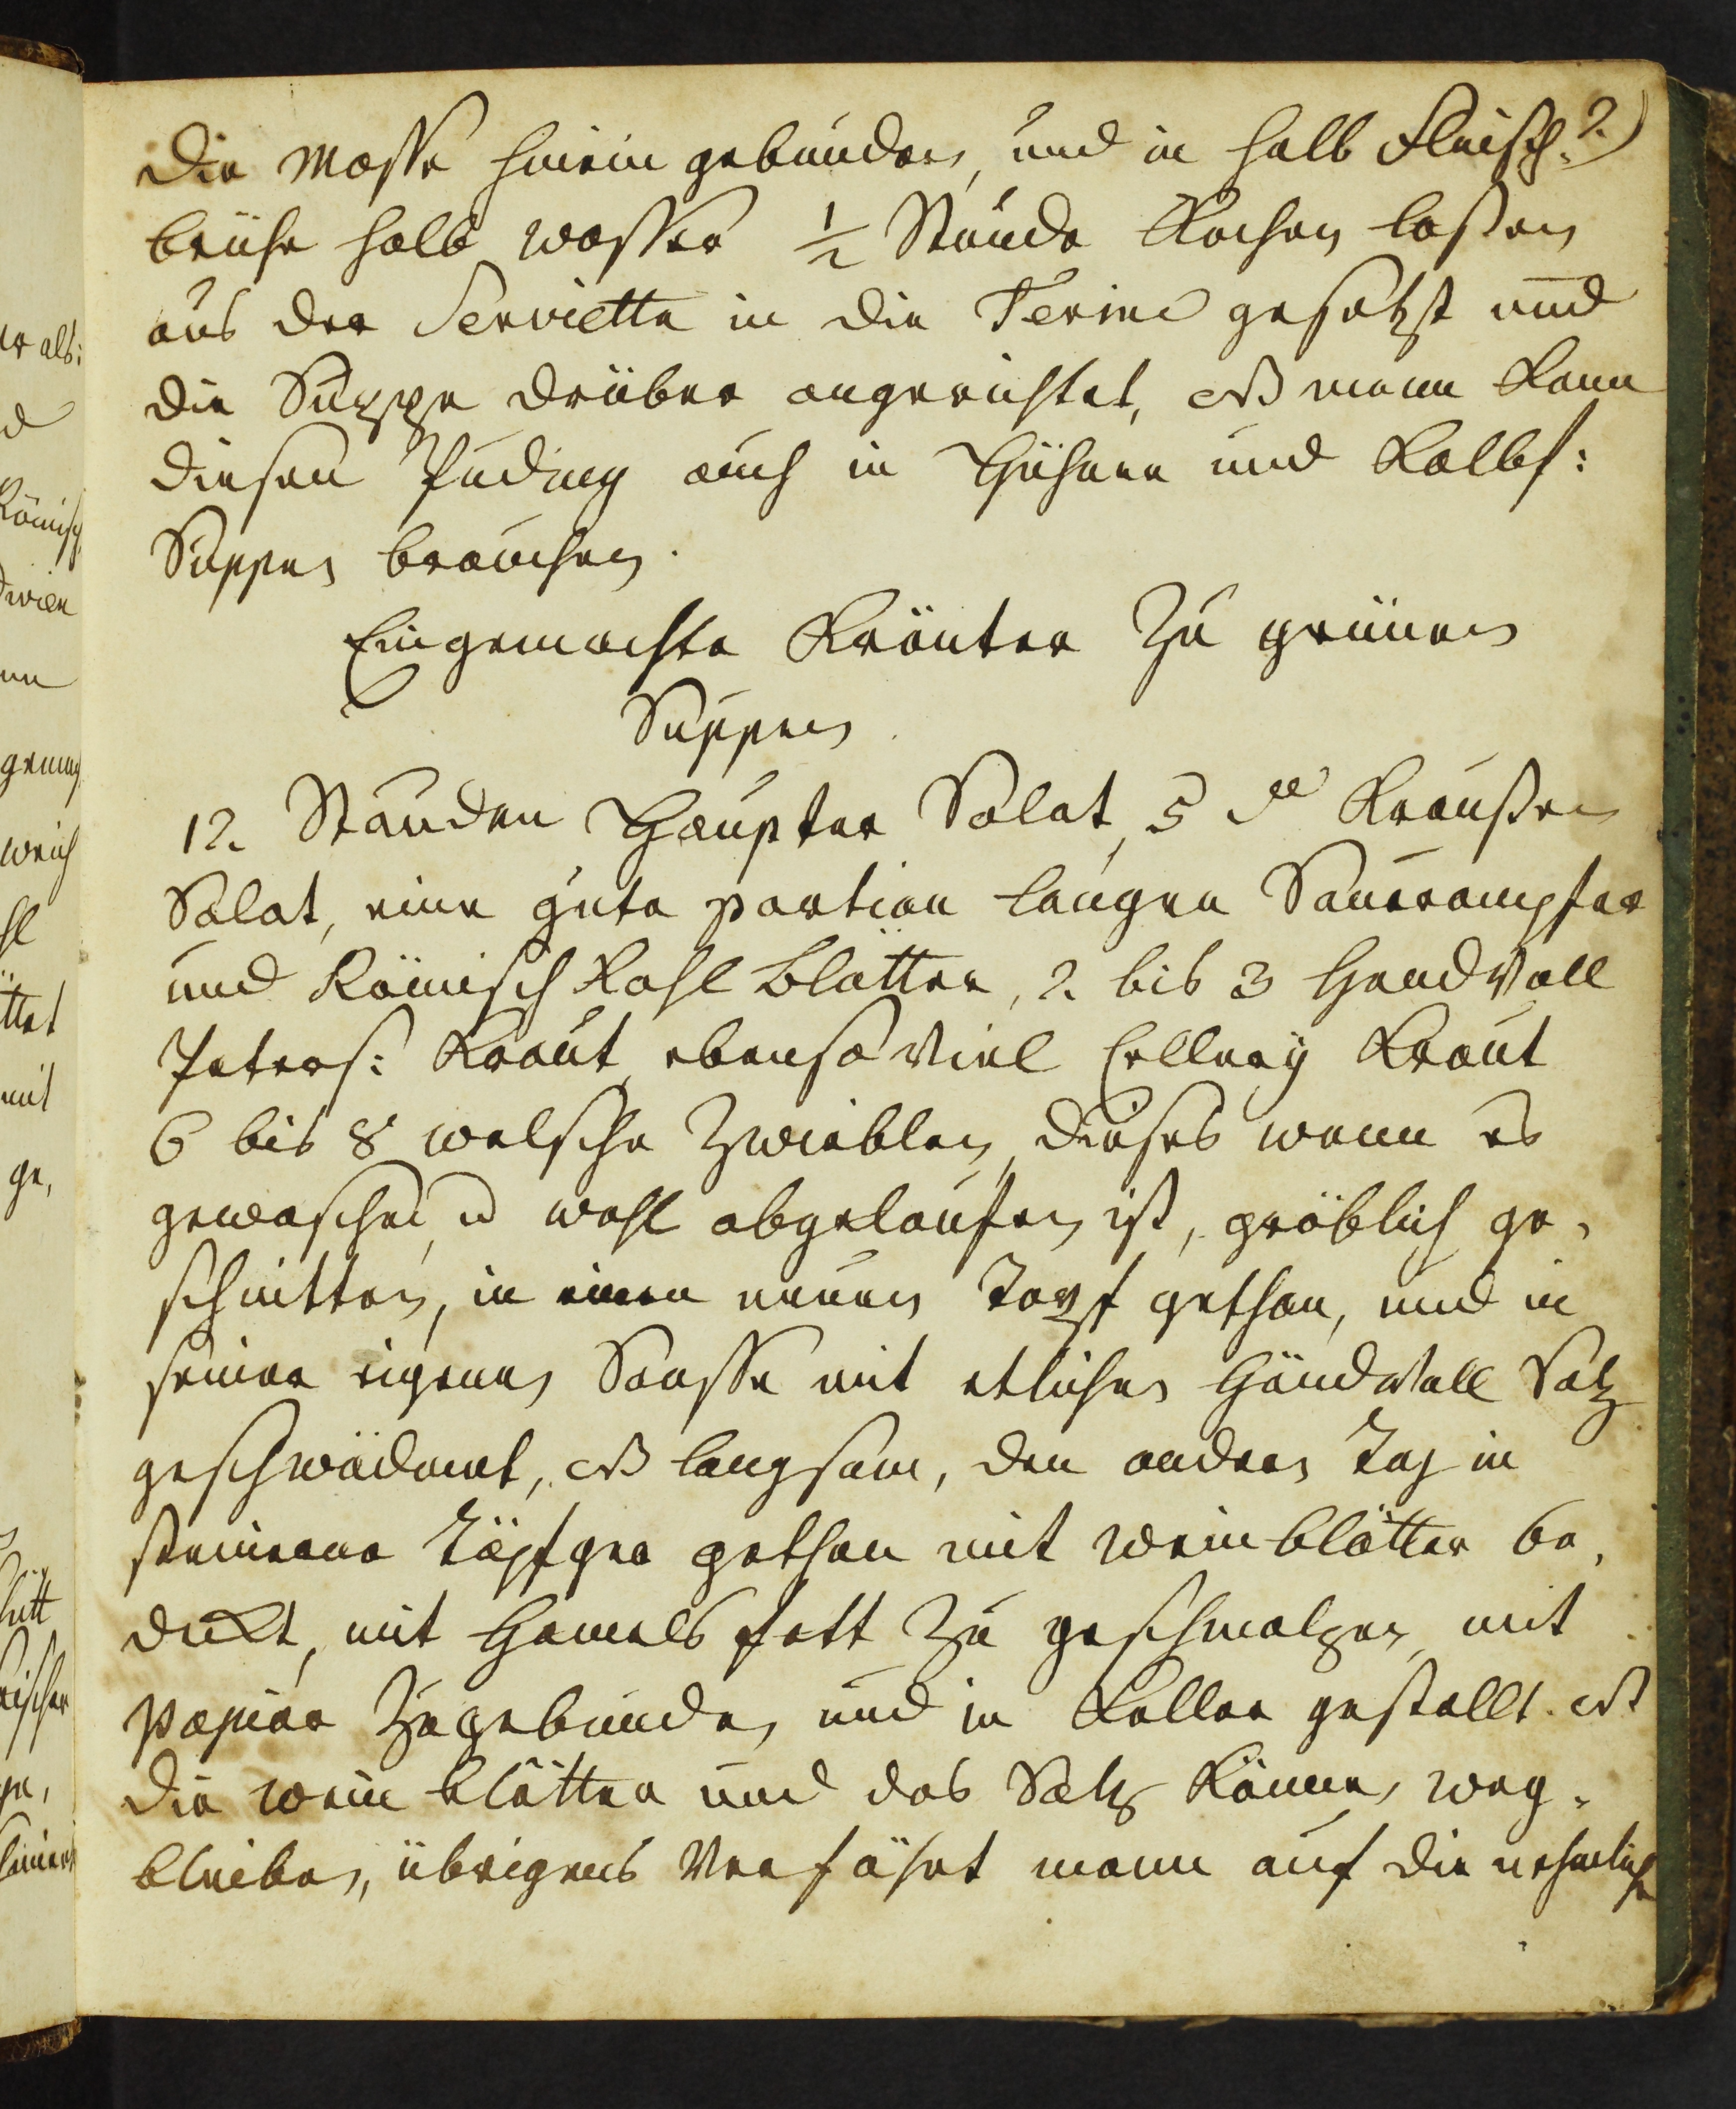 2.)
die Masse hinein gebunden, und in halb Fleisch-
brühe halb wasser 1/2 Stunde Kochen lassen
aus der Serviette in die Terine gesetzt und
die Suppe drüber angerichtet, NB mann kann
diesen Puding auch in Hühner und Kalbs:
Suppen brauchen.
Eingemachte Kräuter zu grünen
Suppen.
12. Stauden Haupter Salat, 5 do Krausen
Salat, eine gute partion langen Saurampfer
und Römisch Kohl Blätter, 2. bis 3 Handvoll
Peters: Kraut, ebenso viel Cellery Kraut
6 bis 8 welsche Zwieblen, dieses wann es
gewaschen, u wohl abgelaufen ist, gröblich ge-
schnitten, in einen neuen Topf gethan, und in
seiner eigenen Sausse mit etlichen Händvoll Salz
geschwädemt, NB langsam, den andern Tag in
steinerne Töpfger gethan mit weinblätter be-
deckt, mit Hamels fett zu geschmalzen mit
Papier Zugebunden, und in Keller gestellt. NB
die wein blätter und das Salz Können weg-
bleiben, übrigens Verfährt mann auf die nehmliche